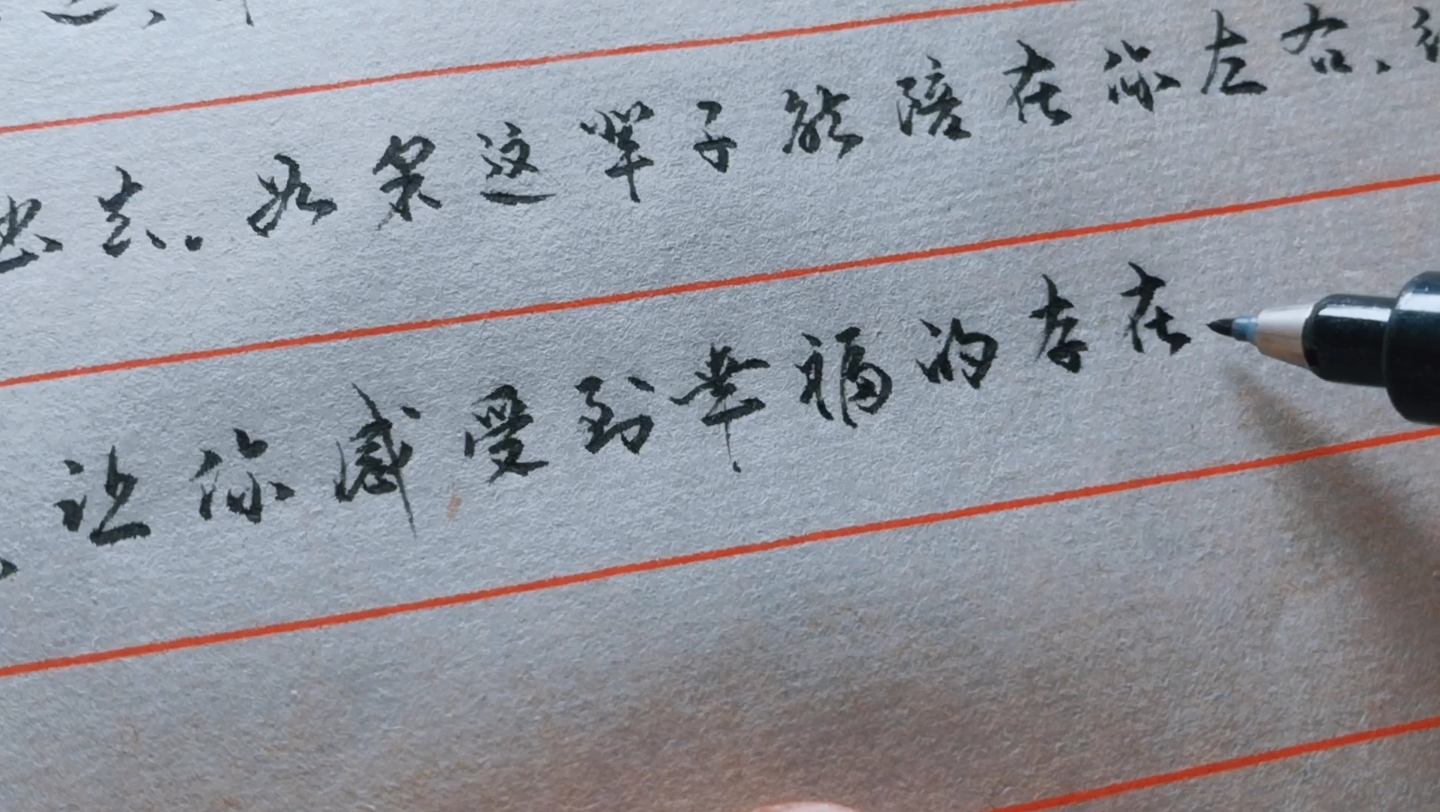 去。如果这辈子能陪在你左右、
让你感受到幸福的存在